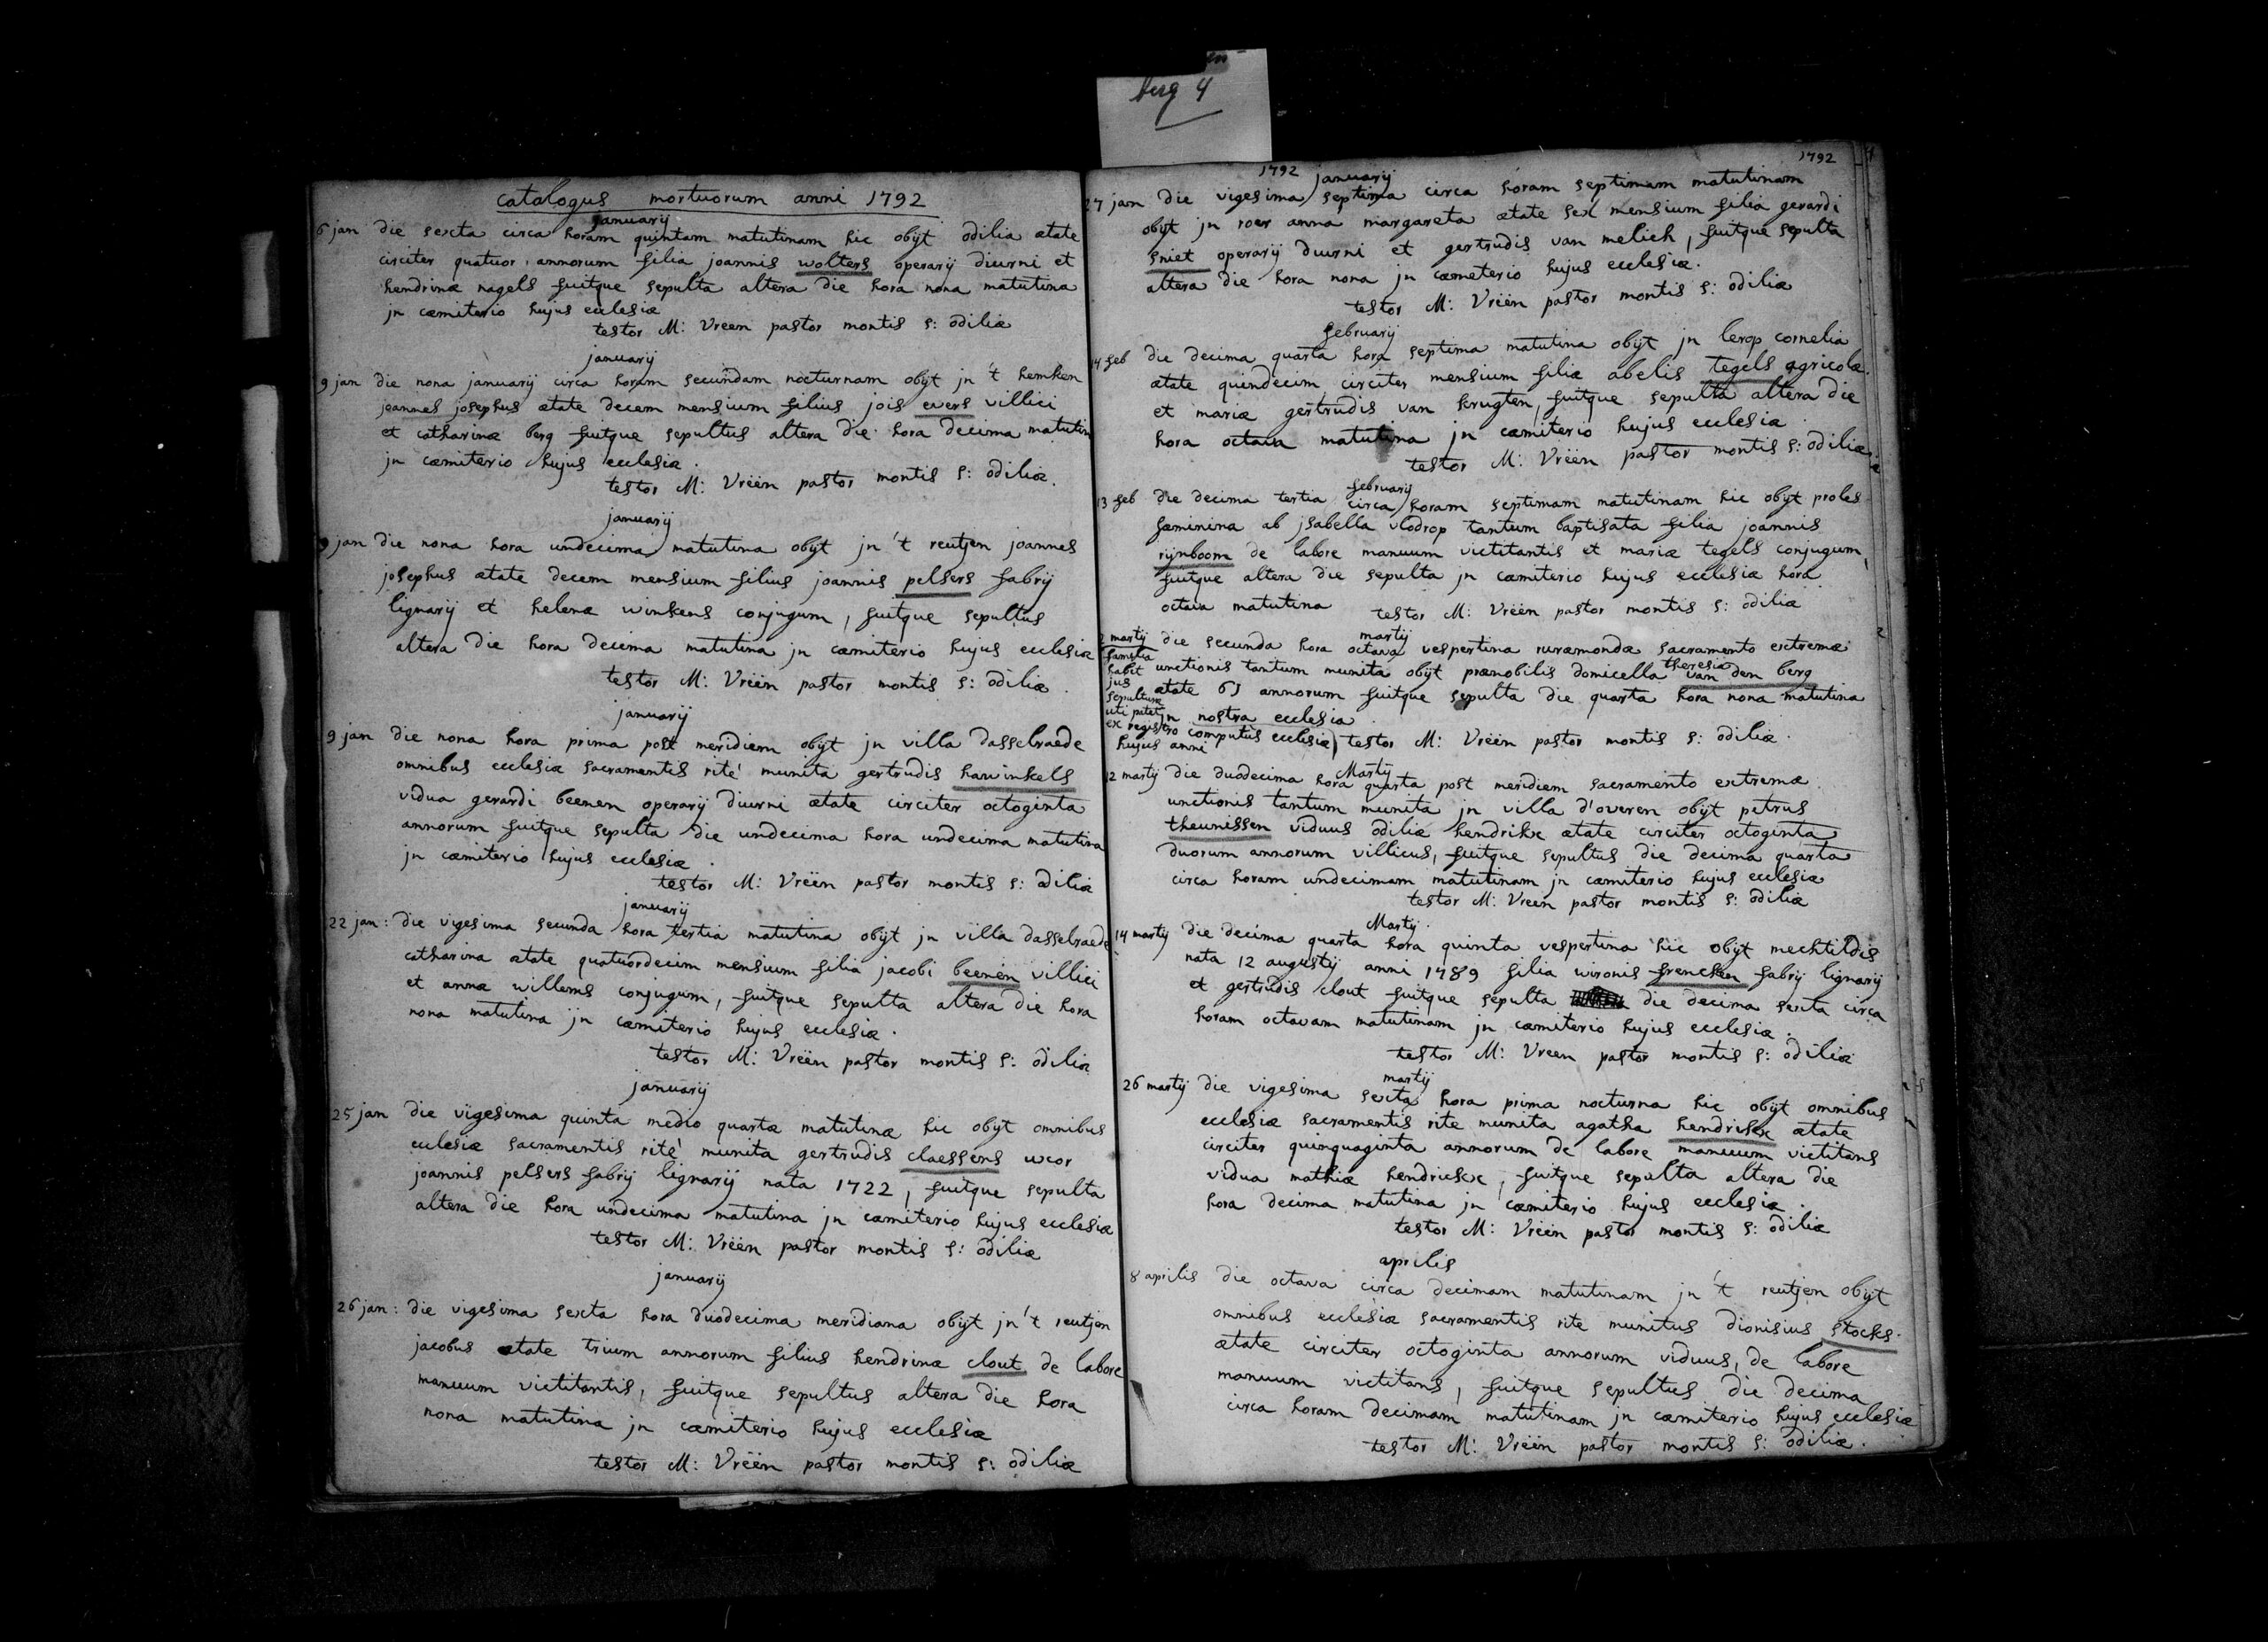 berg 4
catalogus mortuorum anni 1792
januarij
6 jan die sexta circa horam quintam matutinam hic obijt odilia ætate
circiter quatuor annorum filia joannis wolters operarij diurni et
hendrinæ nagels fuitque sepulta altera die hora nona matutina
jn cæmiterio hujus ecclesiæ
testor M: Vreën pastor montis s: odiliæ
januarij
9 jan die nona januarij circa horam secundam nocturnam obijt jn 't hemken
joannes josephus ætate decem mensium filius jois evers villici
et catharinæ berg fuitque sepultus altera die hora decima matutin
jn cæmiterio hujus ecclesiæ.
testor M: Vreën pastor montis s: odiliæ.
januarij
9 jan die nona hora undecima matutina obijt jn 't reutjen joannes
josephus ætate decem mensium filius joannis pelsers fabrij
lignarij et helenæ winkens conjugum, fuitque sepultus
altera die hora decima matutina jn cæmiterio hujus ecclesiæ
testor M: Vreën pastor montis s: odiliæ.
januarij
9 jan die nona hora prima post meridiem obijt jn villa dasselraede
omnibus ecclesiæ sacramentis rité munita gertrudis hawinkels
vidua gerardi beenen operarij diurni ætate circiter octoginta
annorum fuitque sepulta die undecima hora undecima matutina
jn cæmiterio hujus ecclesiæ.
testor M: Vreën pastor montis s: odiliæ
januarij
22 jan: die vigesima secunda hora tertia matutina obijt jn villa dasselraede
catharina ætate quatuordecim mensium filia jacobi beenen villici
et annæ willems conjugum, fuitque sepulta altera die hora
nona matutina jn cæmiterio hujus ecclesiæ.
testor M: Vreën pastor montis s: odiliæ
januarij
25 jan die vigesima quinta medio quartæ matutinæ hic obijt omnibus
ecclesiæ sacramentis rité munita gertrudis claessens uxor
joannis pelsers fabrij lignarij nata 1722, fuitque sepulta
altera die hora undecima matutina jn cæmiterio hujus ecclesiæ
testor M: Vreën pastor montis s: odiliæ
januarij
26 jan: die vigesima sexta hora duodecima meridiana obijt jn 't reutjen
jacobus ætate trium annorum filius hendrinæ clout de labore
manuum victitantis, fuitque sepultus altera die hora
nona matutina jn cæmiterio hujus ecclesiæ
testor M: Vreën pastor montis s: odiliæ
1792
1792 januarij
27 jan die vigesima septima circa horam septimam matutinam
obijt jn roer anna margareta ætate sex mensium filia gerardi
sniet operarij diurni et gertrudis van melich, fuitque sepulta
altera die hora nona jn cæmeterio hujus ecclesiæ.
testor M: Vreën pastor montis s: odiliæ
februarij
14 feb die decima quarta hora septima matutina obijt jn lerop cornelia
ætate quindecim circiter mensium filia abelis tegels agricolæ.
et mariæ gertrudis van krugten, fuitque sepulta altera die
hora octava matutina jn cæmiterio hujus ecclesiæ.
testor M: Vreën pastor montis s: odiliæ
februarij
13 feb die decima tertia circa horam septimam matutinam hic obijt proles
fæminina ab jsabella vlodrop tantum baptisata filia joannis
rijnboom de labore manuum victitantis et mariæ tegels conjugum,
fuitque altera die sepulta jn cæmiterio hujus ecclesiæ hora
octava matutina testor M: Vreën pastor montis s: odiliæ
martij
2 martij die secunda hora octava vespertina ruræmondæ sacramento extremæ
unctionis tantum munita obijt prænobilis domicella theresia van den berg
ætate 61 annorum fuitque sepulta die quarta hora nona matutina
jn nostra ecclesia.
testor M: Vreën pastor montis s: odiliæ.
familia
habet
jus
sepulturæ
uti patet
ex registro computus ecclesiæ
hujus anni
Martij
12 martij die duodecima hora quarta post meridiem sacramento extremæ
unctionis tantum munita jn villa d'overen obijt petrus
theunissen viduus odiliæ hendrikx ætate circiter octoginta
duorum annorum villicus, fuitque sepultus die decima quarta
circa horam undecimam matutinam jn cæmiterio hujus ecclesiæ
testor M: Vreën pastor montis s: odiliæ
Martij.
14 martij die decima quarta hora quinta vespertina hic obijt mechtildis
nata 12 augustij anni 1789 filia wironis frencken fabrij lignarij
et gertrudis clout fuitque sepulta die decima sexta circa
horam octavam matutinam jn cæmiterio hujus ecclesiæ.
testor M: Vreën pastor montis s: odiliæ
martij
26 martij die vigesima sexta hora prima nocturna hic obijt omnibus
ecclesiæ sacramentis rite munita agatha hendrikx ætate
circiter quinquaginta annorum de labore manuum victitans
vidua mathiæ hendrickx, fuitque sepulta altera die
hora decima matutina jn cæmiterio hujus ecclesiæ.
testor M: Vreën pastor montis s: odiliæ
aprilis
8 aprilis die octava circa decimam matutinam jn 't reutjen obijt
omnibus ecclesiæ sacramentis rite munitus dionisius stocks.
ætate circiter octoginta annorum viduus, de labore
manuum victitans, fuitque sepultus die decima
circa horam decimam matutinam jn cæmiterio hujus ecclesiæ
testor M: Vreën pastor montis s: odiliæ.